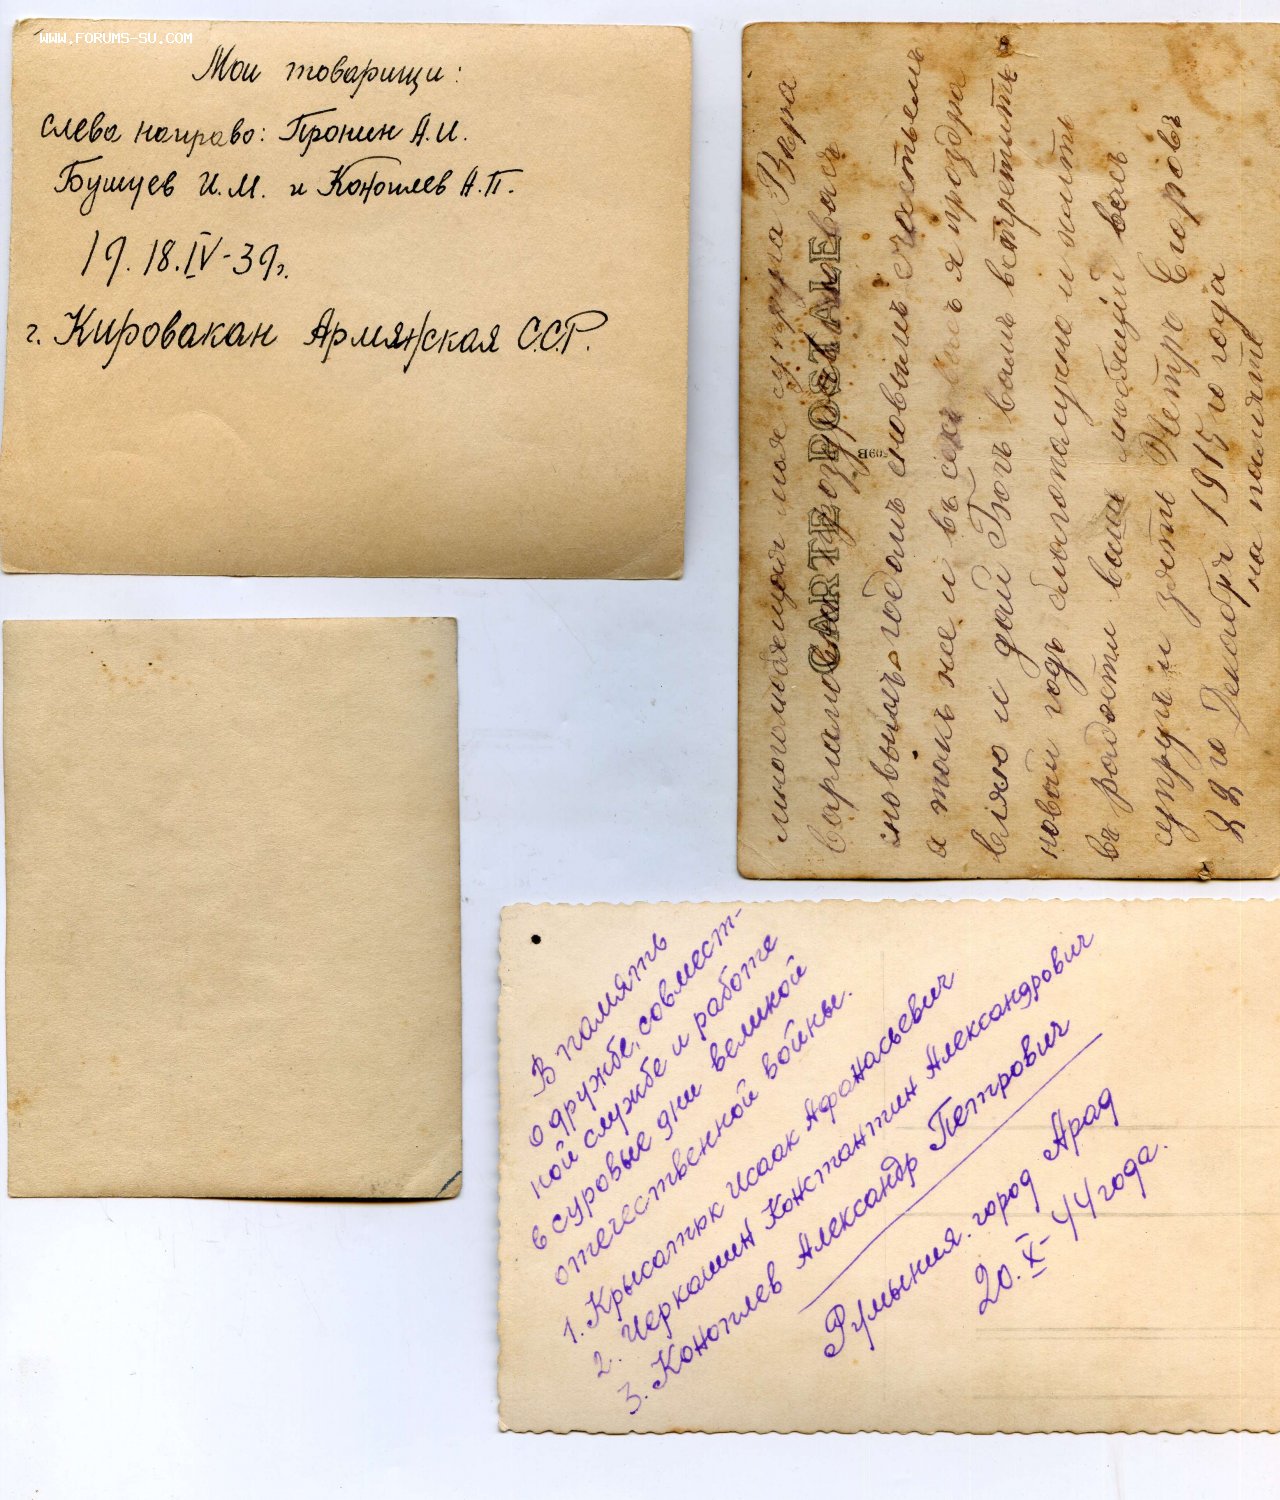 WWW.FORUMS-SU.COM
Мои товарищи:
слева направо: Пронин А.И.
Бушуев И.М. и Коноплев А.П.
19. 18.IV-39г.
г. Кировакан Армянская С.С.Р.
CARTE POSTALE
многолюбящая моя супруга Вера
варламовна поздравляю вася
сновымъ годомъ сновымъ счастьемъ
а такъ же и въ сехъ васъ я проздра
вляю и дай Богъ вамъ встретить
новый годъ благополучно и жить
въ радости вашъ любящій васъ
супругъ и зять Петро Егоровъ
22 го Декабря 1915 го года
на память
В память
о дружбе, совмест-
ной службе и работе
в суровые дни великой
отечественной войны.
1. Крысатюк Исаак Афонасьевич
2. Черкашин Константин Александрович
3. Коноплев Александр Петрович
Румыния. город Арад
20. X-44 года.